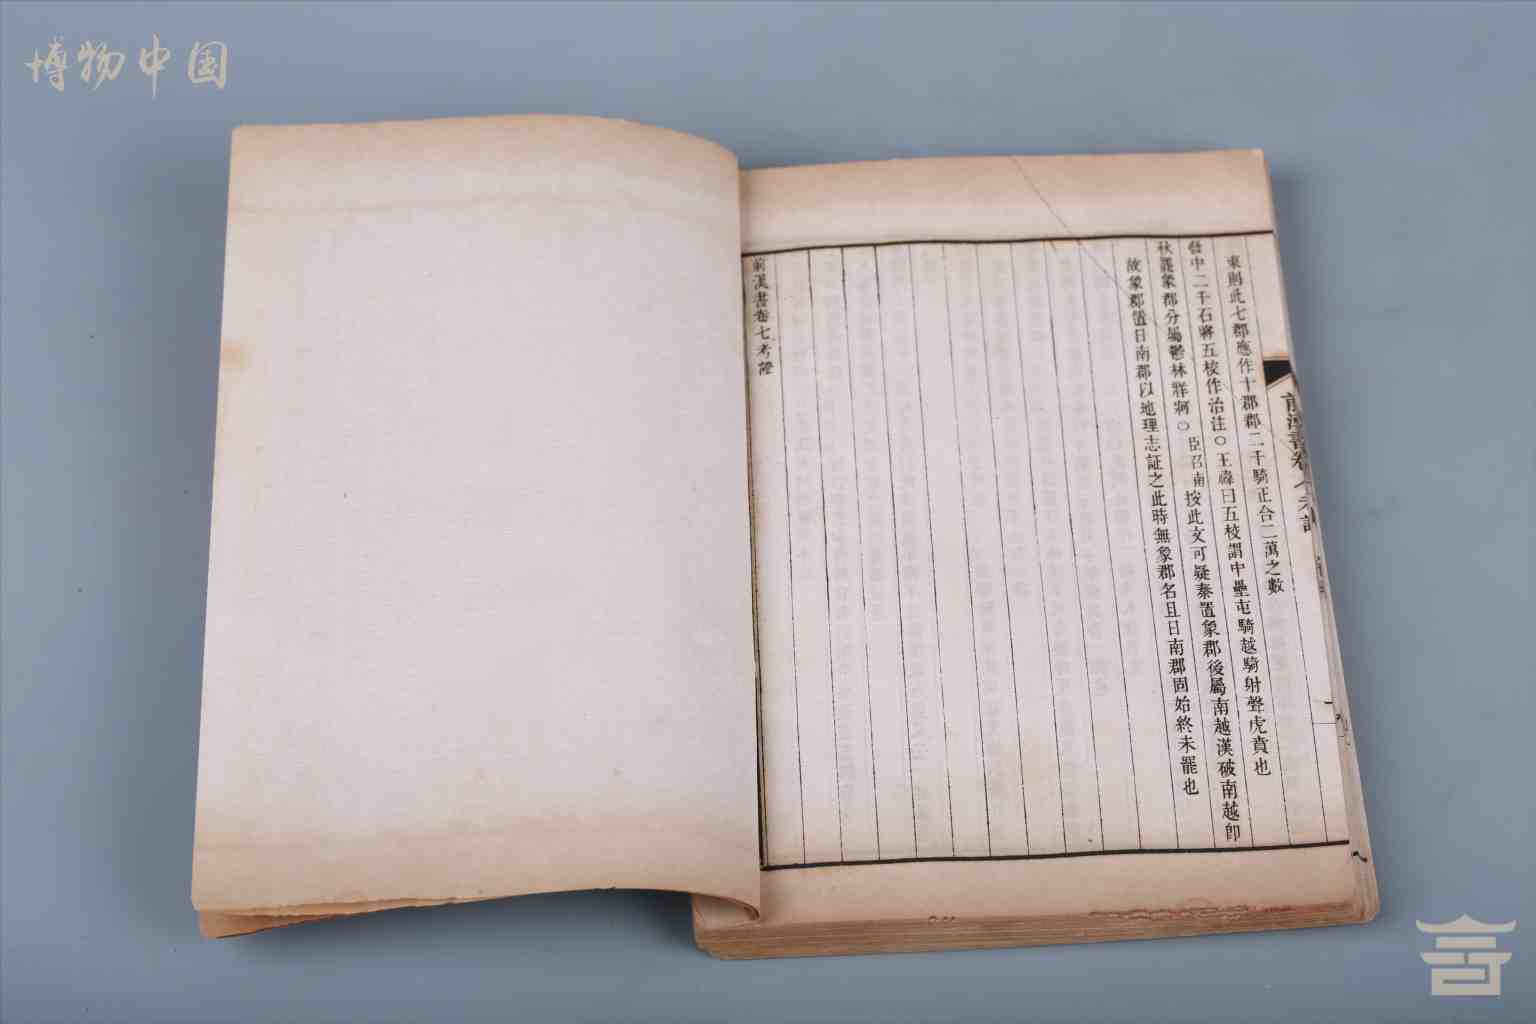 博物中国
東則此七郡應作十郡郡二千騎正合二萬之數
發中二千石將五校作治注○王禕曰五校謂中壘屯騎越騎射聲虎賁也
秋罷象郡分屬鬱林牂牁○臣召南按此文可疑秦置象郡後屬南越漢破南越卽
故象郡置日南郡以地理志証之此時無象郡名且日南郡固始終未罷也
前漢書卷七考證
前漢書卷